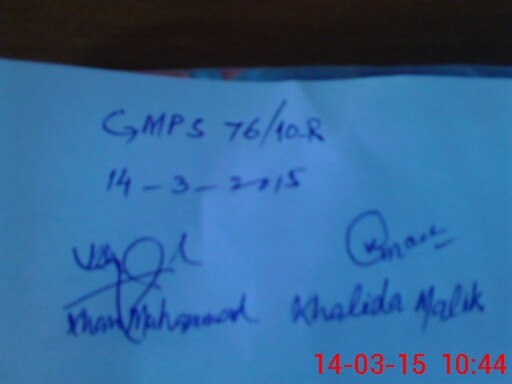 GMPS 76/10.R
14-3-2015
Muhammad Khalida Malik
14-03-15 10:44